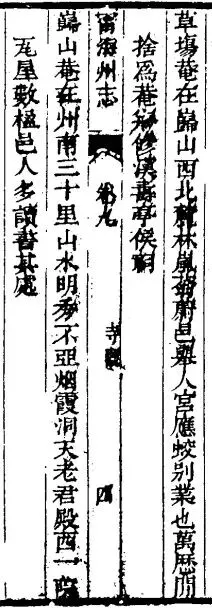 草場菴在嵩山西北林嵐蓊蔚邑舉人宮應蛟别業也萬歷間
捨爲菴漢壽亭侯祠
寧海州志
卷九
寺觀
四
嵩山菴在州南三十里山水明秀不亞烟霞洞天老君殿西一院
瓦屋數楹邑人多讀書其處